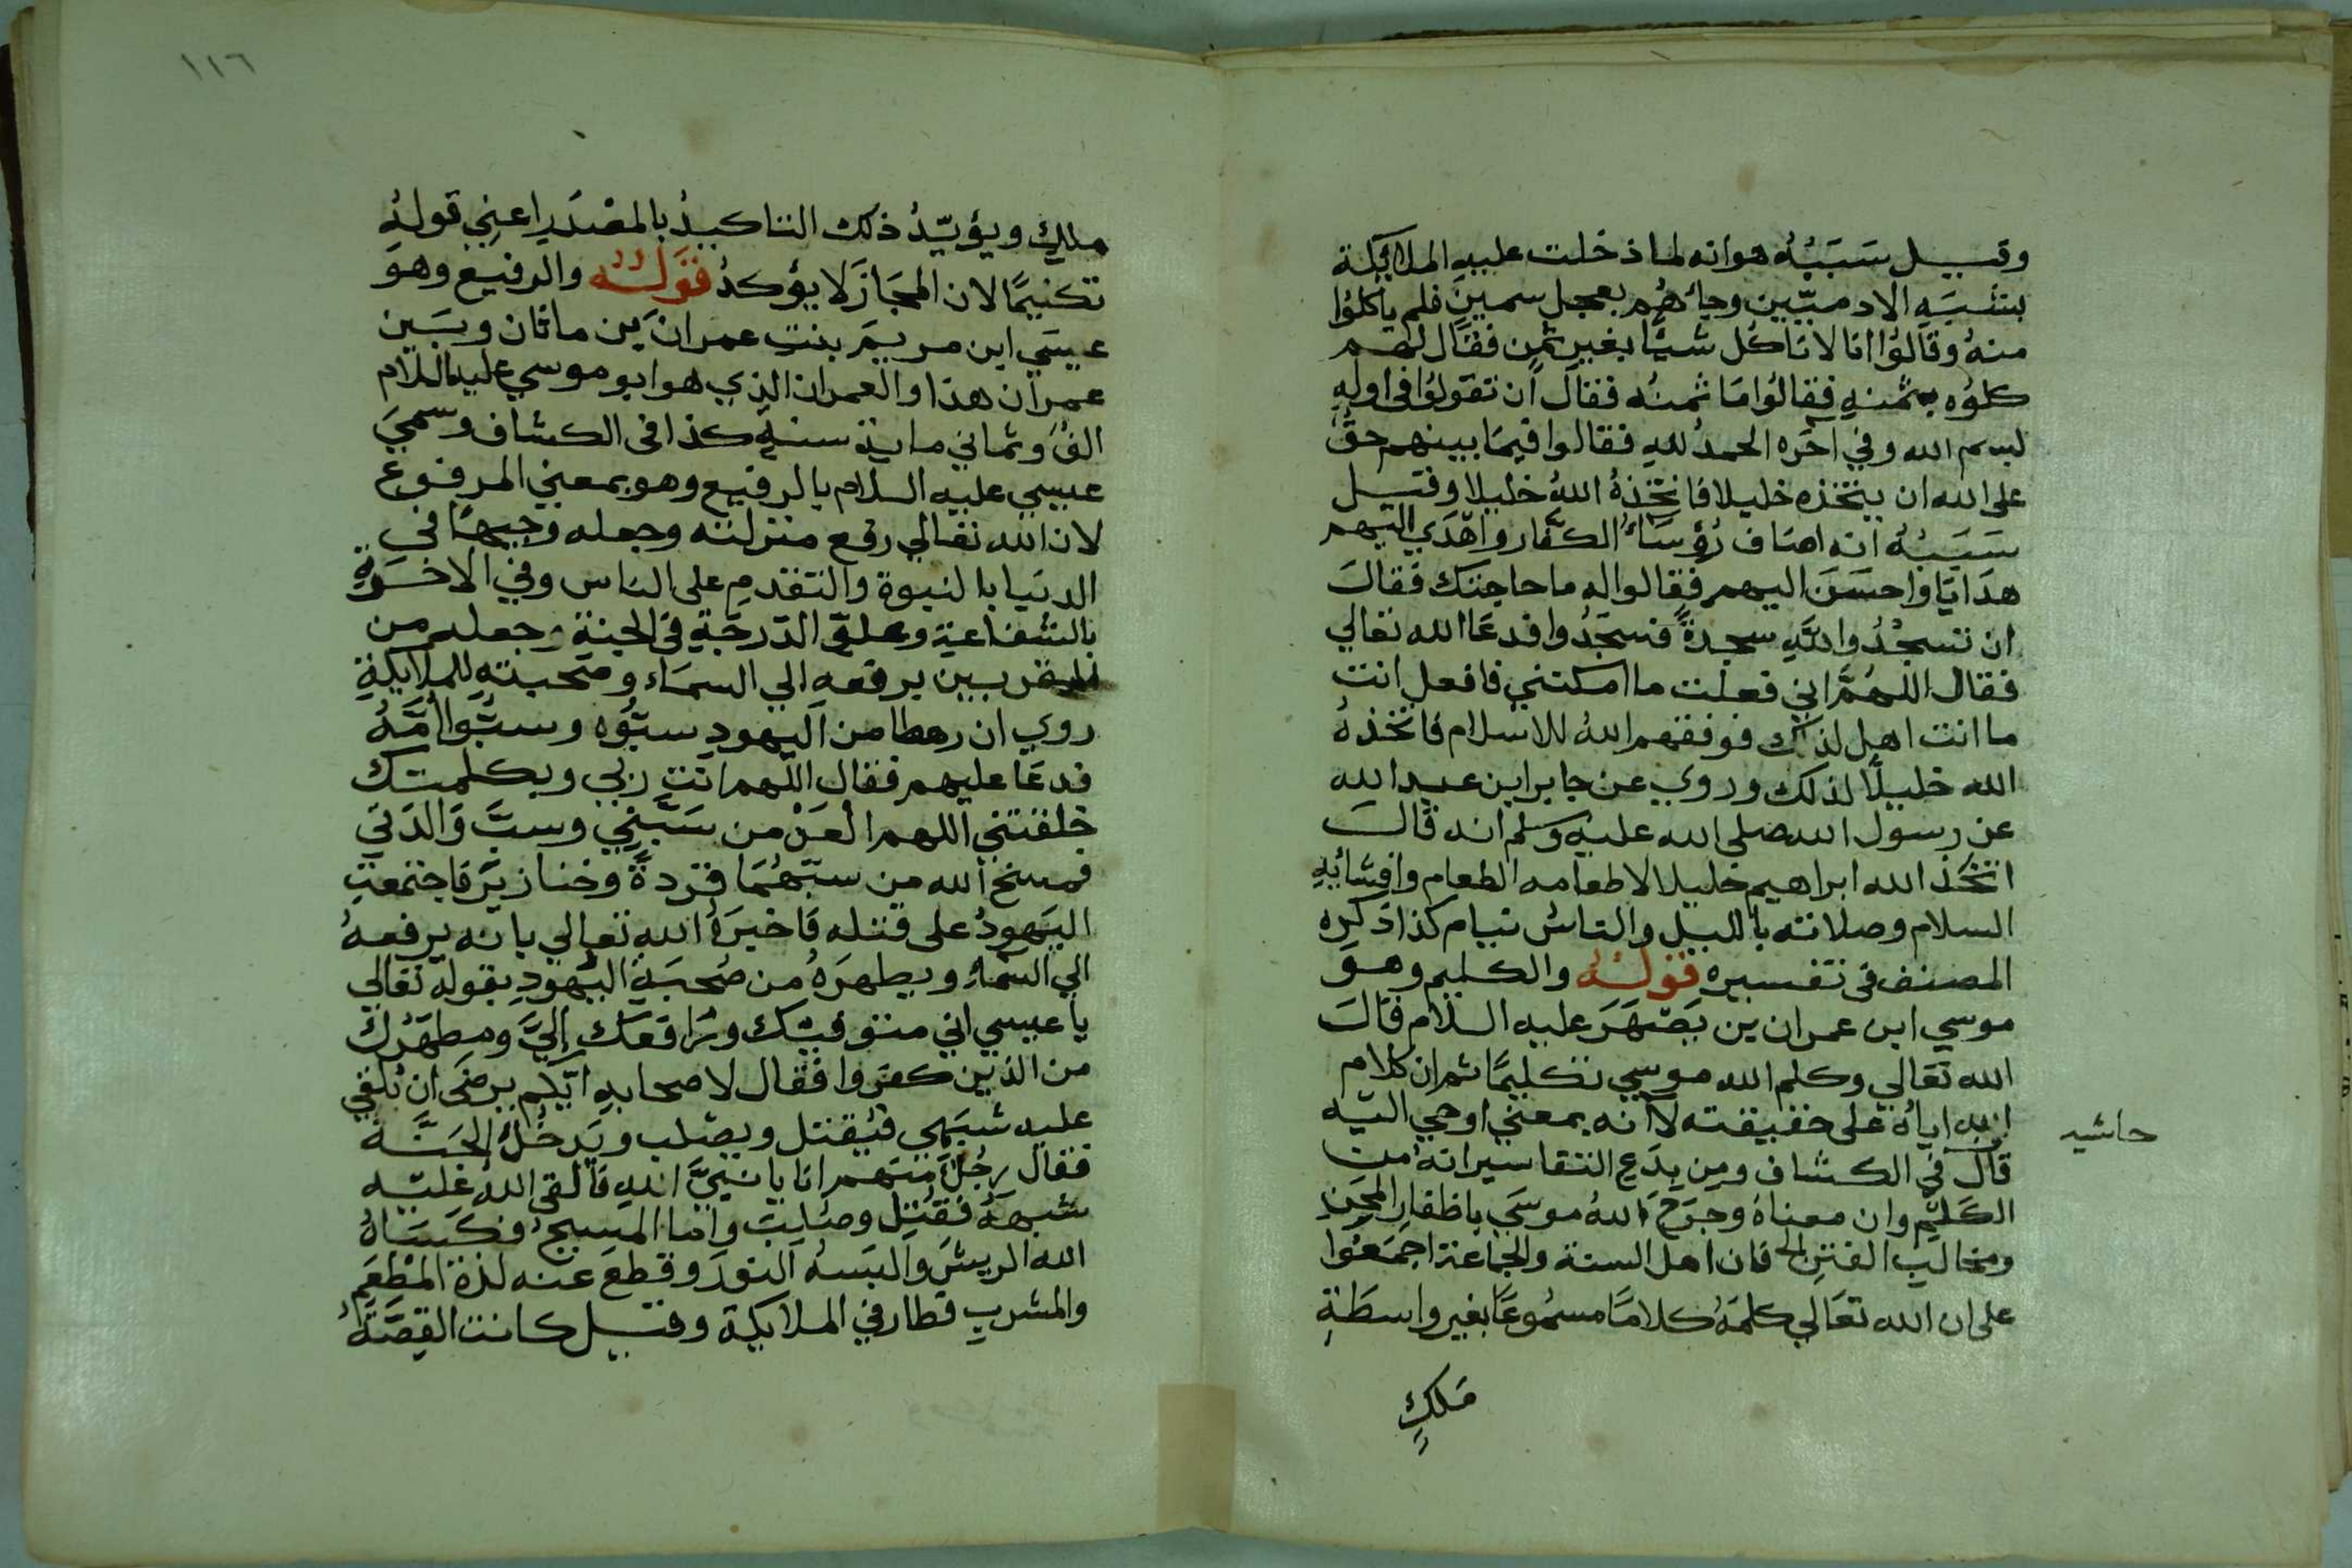 وقيل سَبَبُهُ هو انه لما ذخلت عليه الملائكة
بتشبيه الادميّين وجاءهُم بعجل سمين فلم ياكلوُا
منهُ وقالوُا انا لا ناكُل شيًا بغير ثمن فقال لهم
كلوُه بثمنهِ فقالوُا مَا ثمنُه فقال ان تقولوُا فى اوله
لبسم الله وفي اخره الحمدُ للهِ فقالوا فيمَا بينهم حقٌ
على الله ان يتخذه خليلا فاتخذهُ اللهُ خليلا وقيل
سَبَبُهُ انه اضاف رُؤسَاءُ الكفار واهْدَي اليهم
هدَايَا واحسَنَ اليهم فقالوا له ما حاجتك فقالَ
ان تسجُدُوا للهِ سجدةً فسجَدُوا فدعَا الله تعالي
فقال اللهُمَّ اني فعلت ما امكنني فافعل انت
ما انت اهل لذلك فوفقهم اللهُ للاسلام فاتخذهُ
الله خليلًا لذلك وروي عن جابر ابن عبد الله
عن رسول الله صلى الله عليه وسلم انه قالَ
اتخَذ الله ابراهيم خليلا لاطعامه الطعام وافشائهِ
السلام وصلاته بالليل والناسُ نيام كذا ذكره
المصنف فى تفسيره قولُهُ والكليم وهو
موسي ابن عمران بن يَصْهَرَ عليه السلام قالَ
الله تعَالي وكلم الله موسي تكليمًا ثم ان كلام
الله اياهُ على حقيقته لا انه بمعني اوحي اليه
حاشيه
قال في الكشاف ومِن بِدَعِ التفاسير انهُ من
الكَليْم وان معناهُ وجَرَحَ اللهُ موسَي باظفارِ المحَنِ
ومخالبِ الفتنِ الخ فان اهل السنة والجماعة اجمَعُوا
على ان الله تعَالي كلمَهُ كلامًا مسمُوعًا بغير واسطَةِ
مَلكٍ
١١٦
ملكٍ ويؤيّدُ ذلك التاكيدُ بالمصْدَرِ اعني قولهُ
تكليمًا لان المجَازَ لا يؤكدُ قَولُهُ والرفيع وهوَ
عيسَي ابن مريَمَ بنتِ عمرانَ بن ماثان وبَين
عمرَان هذا والعمران الذي هو ابو موسي عليه السلام
الفٌ وثماني ماية سنةٍ كذا فى الكشاف وسميَ
عيسي عليه السلام بالرفيع وهو بمعني المرفوع
لان الله تعالي رفع منزلته وجعله وجيهًا في
الدنيَا بالنبوة والتقدمِ على الناس وفي الاخرَةِ
بالشفاعةِ وعلوّ الدّرجَةِ فى الجنة وجعله من
المقربين برفعه الي السمَاء وصحبتهِ للملايكةِ
روي ان رهطا من اليهود سبُّوه وسبُّوا اُمَّهُ
فدعَا عليهم فقال اللهم انت ربي وبكلمتك
خلقتني اللهم العَنْ من سَبَّنِي وسبَّ وَالدَتي
فمسخ الله من سبّهُمَا قردةً وخنازيرَ فاجتمعتِ
اليَهودُ على قتله فَاخبرَهُ الله تعَالي بانه يرفعهُ
الي السّماءِ ويطهرَهُ من صُحبَةِ اليَهودِ بقوله تعَالي
يا عيسي اني متوفيك ورَافعَك اِليَّ ومطهَرُك
من الذين كفرَوا فقال لاصحابهِ ايّكم يرضَى ان يُلقي
عليه شبَهي فيُقتل ويصْلب ويَدخُلُ الجنَّة
فقال رجُلٌ منهم انا يا نبيَّ اللهِ فالقي اللهُ عليْه
شبهَهُ فقُتِلَ وصُلِبَ وامَّا المسيحُ فكسَاهُ
الله الريشَ والبَسهُ النورَ وقطعَ عنه لذة المطعَمِ
والمشربِ فطار في الملايكة وقيل كانت القصَّةُ